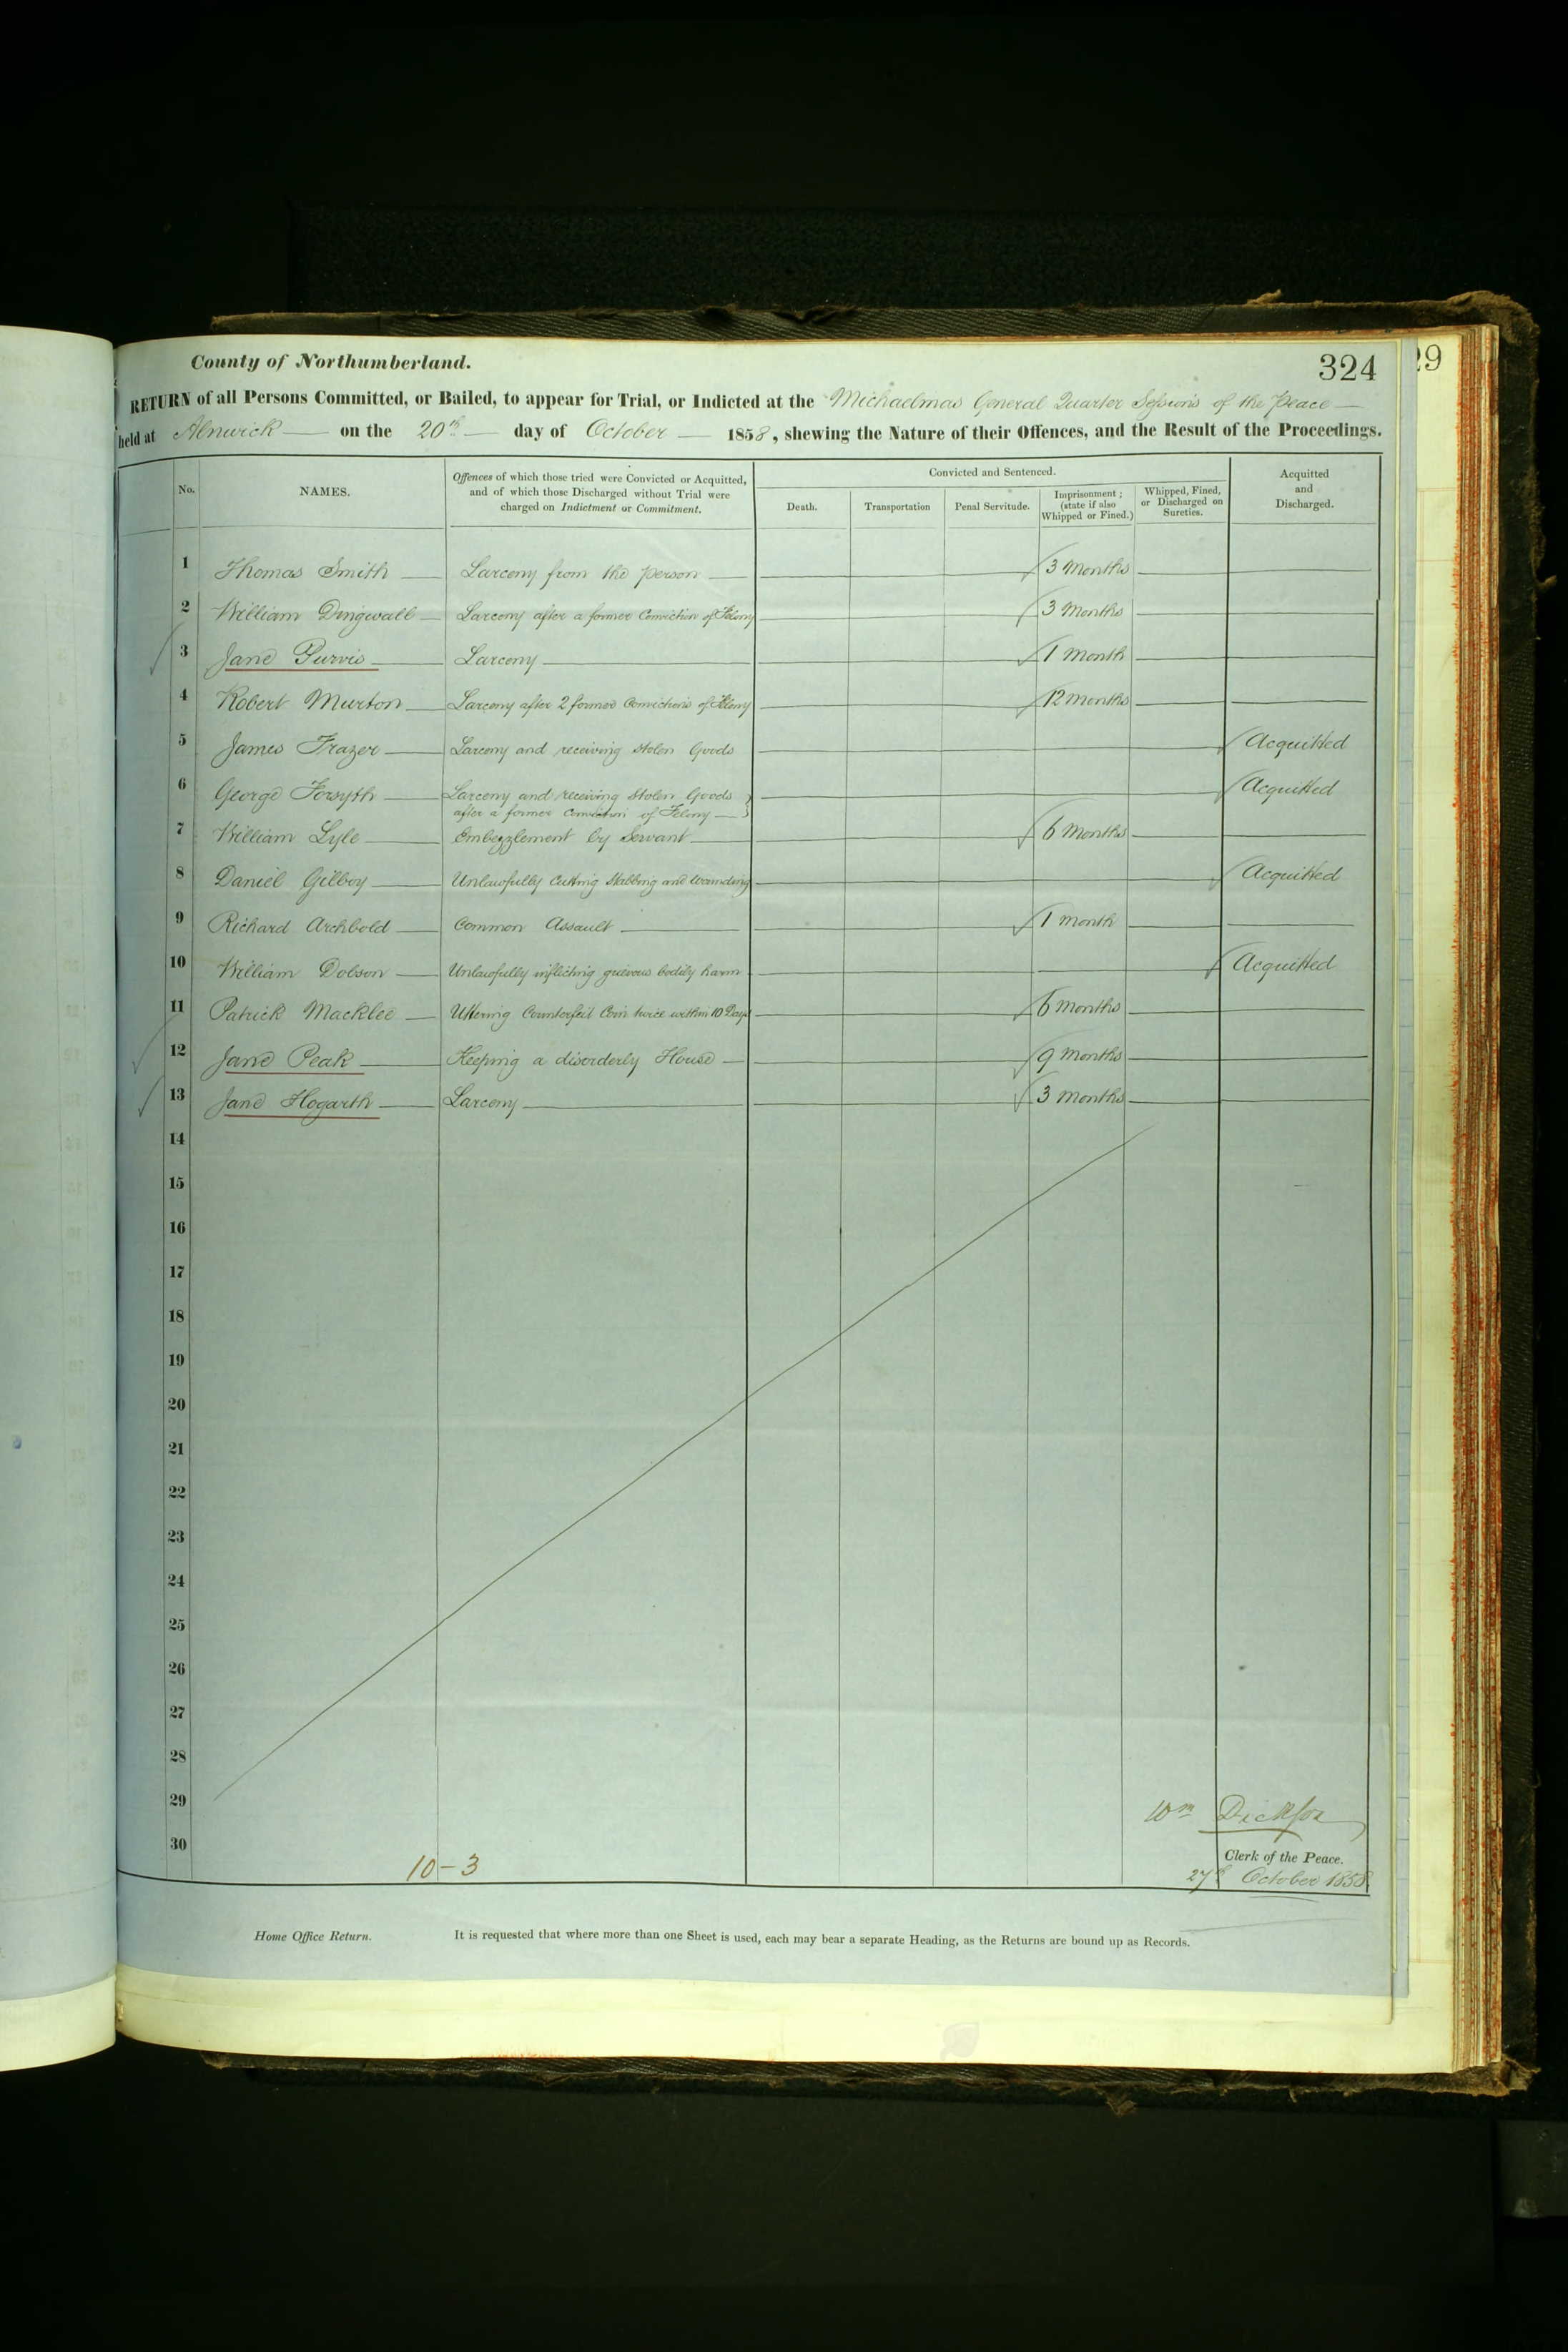 County of Northumberland.
324
29
RETURN of all Persons Committed, or Bailed, to appear for Trial, or Indicted at the Michaelmas General Quarter Sessions of the Peace
held at Alnwick on the 20th day of October 1858, shewing the Nature of their Offences, and the Result of the Proceedings.
No. NAMES. Offences of which those tried were Convicted or Acquitted, and of which those Discharged without Trial were charged on Indictment or Commitment. Convicted and Sentenced. Acquitted and Discharged.
Death. Transportation Penal Servitude. Imprisonment; (state if also Whipped or Fined.) Whipped, Fined, or Discharged on Sureties.
1 Thomas Smith Larceny from the person 3 Months
2 William Dingwall Larceny after a former Conviction of Felony 3 Months
3 Jane Purvis Larceny 1 Month
4 Robert Murton Larceny after 2 former Convictions of Felony 12 Months
5 James Frazer Larceny and receiving stolen Goods Acquitted
6 George Forsyth Larceny and receiving stolen Goods Acquitted
after a former Conviction of Felony
7 William Lyle Embezzlement by Servant 6 Months
8 Daniel Gilboy Unlawfully Cutting Stabbing and Wounding Acquitted
9 Richard Archbold Common Assault 1 Month
10 William Dobson Unlawfully inflicting grievous bodily harm Acquitted
11 Patrick Macklee Uttering Counterfeit Coin twice within 10 Days 6 Months
12 Jane Peak Keeping a disorderly House 9 Months
13 Jane Hogarth Larceny 3 Months
14
15
16
17
18
19
20
21
22
23
24
25
26
27
28
29
Wm Dickson
30
Clerk of the Peace.
10-3
27th October 1858.
Home Office Return. It is requested that where more than one Sheet is used, each may bear a separate Heading, as the Returns are bound up as Records.